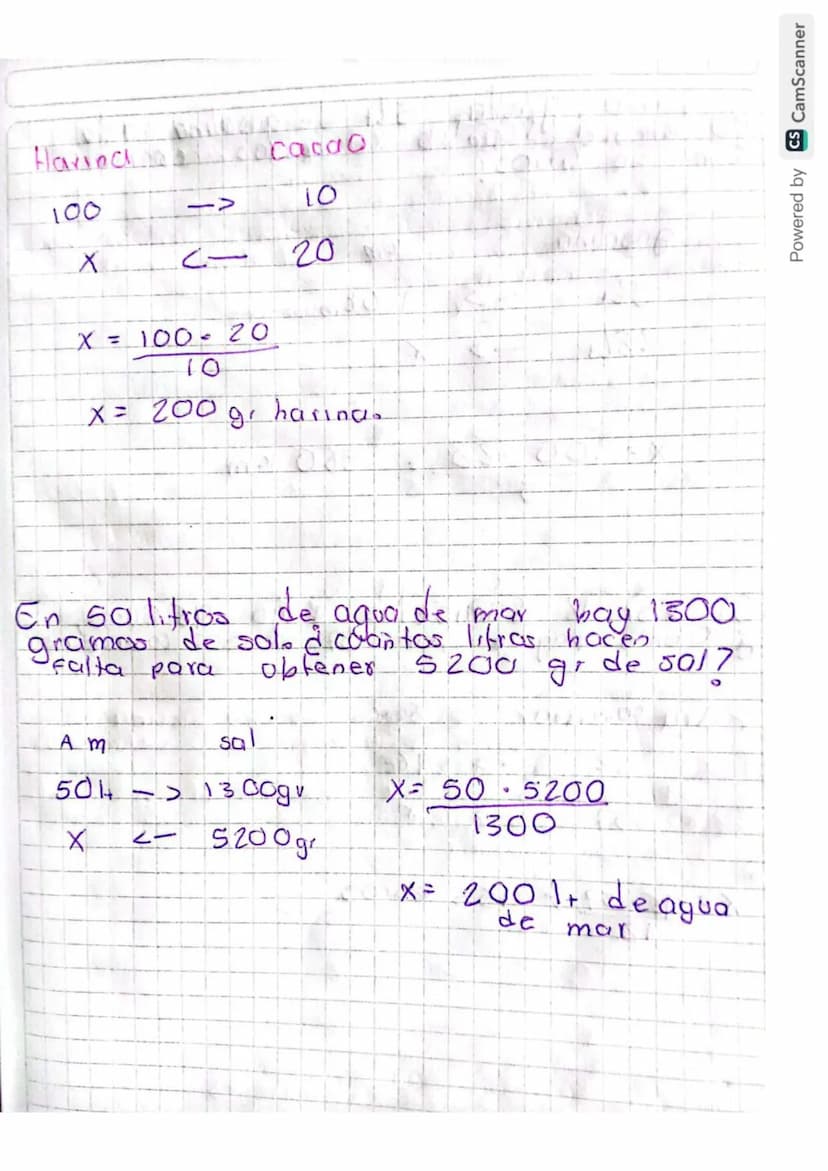 Harina cacao
100 –> 10
x <— 20
x = 100 · 20
10
x = 200 gr harina.
En 50 litros de agua de mar hay 1300
gramos de sal. ¿cuántos litros hacen
falta para obtener 5200 gr de sal?
A m sal
50 lt –> 1300gr x= 50 · 5200
1300
x <– 5200gr
x= 200 lt de agua
de mar
Powered by CS CamScanner